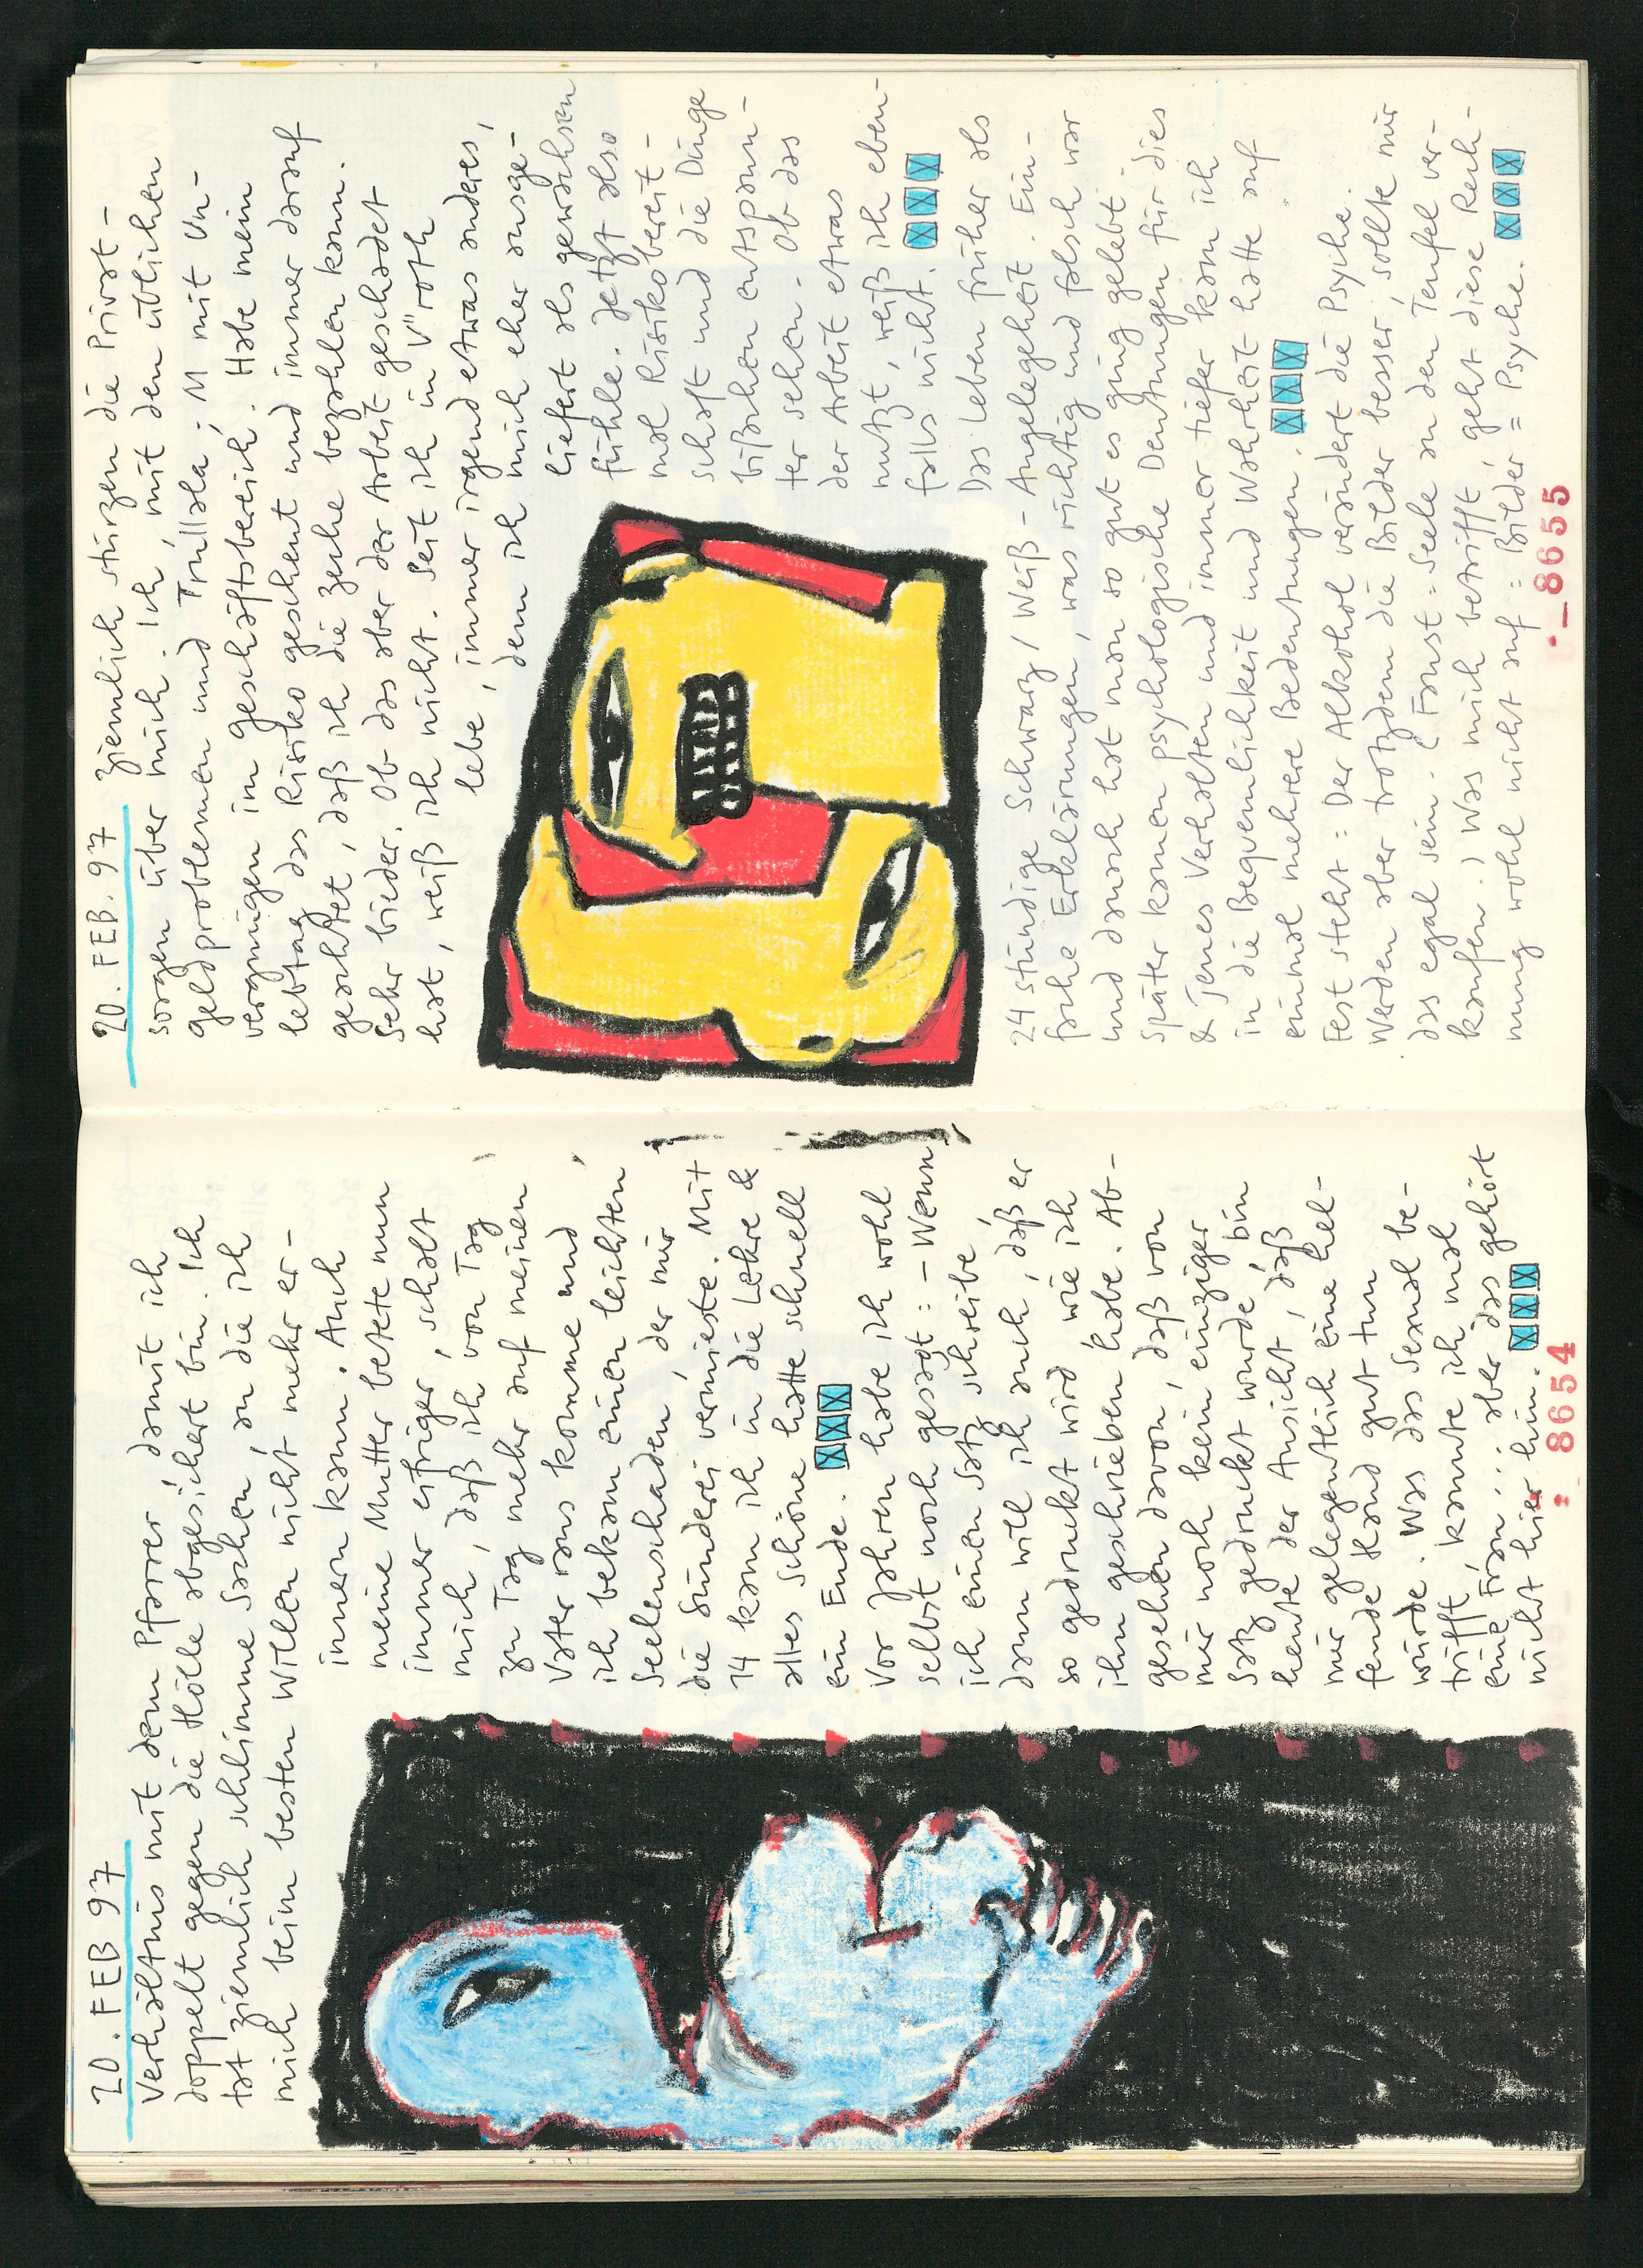 20. FEB 97
Verhältnis mit dem Pfarrer, damit ich
doppelt gegen die Hölle abgesichert bin. Ich
tat ziemlich schlimme Sachen, an die ich
mich beim besten Willen nicht mehr er-
innern kann. Auch
meine Mutter betete nun
immer eifriger, schalt
mich, daß ich von Tag
zu Tag mehr auf meinen
Vater raus komme und
ich bekam einen leichten
Seelenschaden, der mir
die Sünderei vermieste. Mit
14 kam ich in die Lehre &
alles Schöne hatte schnell
ein Ende.
Vor Jahren habe ich wohl
selbst noch gesagt: - Wenn
ich einen Satz schreibe,
dann will ich auch, daß er
so gedruckt wird, wie ich
ihn geschrieben habe. Ab-
gesehen davon, daß von
mir noch kein einziger
Satz gedruckt wurde, bin
heute der Ansicht, daß
mir gelegentlich eine hel-
fende Hand gut tun
würde. Was das Sexual be-
trifft, kannte ich mal
eine Frau... aber das gehört
nicht hier hin.
8654
20. FEB. 97 ziemlich stürzen die Privat-
sorgen über mich. Ich, mit den üblichen
Geldproblemen und Trullala. M mit Un-
vergnügen im Geschäftsbereich. Habe mein
lebtag das Risiko gescheut und immer darauf
geachtet, daß ich die Zeche bezahlen kann.
Sehr bieder. Ob das aber der Arbeit geschadet
hat, weiß ich nicht. Seit ich in V"roth
lebe, immer irgend etwas anderes,
dem ich mich eher ausge-
liefert als gewachsen
fühle. Jetzt also
mal Risikobereit-
schaft und die Dinge
bißchen entspann-
ter sehen. Ob das
der Arbeit etwas
nutzt, weiß ich eben-
falls nicht.
Das Leben früher als
24 stündige Schwarz / Weiß-Angelegeheit. Ein-
fache Erklärungen, was richtig und falsch war
und danach hat man so gut es ging gelebt.
Später kamen psychologische Deutungen für dies
& jenes Verhalten und immer tiefer kam ich
in die Bequemlichkeit und Wahrheit hatte auf
einmal mehrere Bedeutungen.
Fest steht: Der Alkohol verändert die Psyche.
Werden aber trotzdem die Bilder besser, sollte mir
das egal sein. (Faust = Seele an den Teufel ver-
kaufen.) Was mich betrifft, geht diese Rech-
nung wohl nicht auf: Bilder = Psyche.
8655